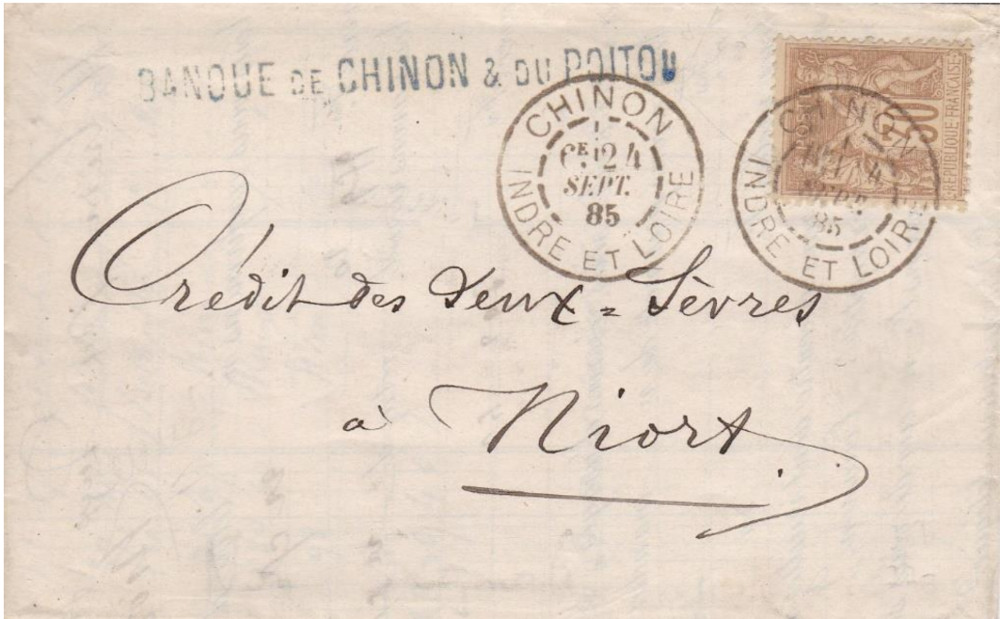 BANQUE DE CHINON & DU POITOU
CHINON
6E 24
SEPT.
85
INDRE ET LOIRE
POSTES
30
REPUBLIQUE FRANÇAISE
CHINON
4
SEPT.
85
INDRE ET LOIRE
Crédit des Deux=Sèvres
à Niort.